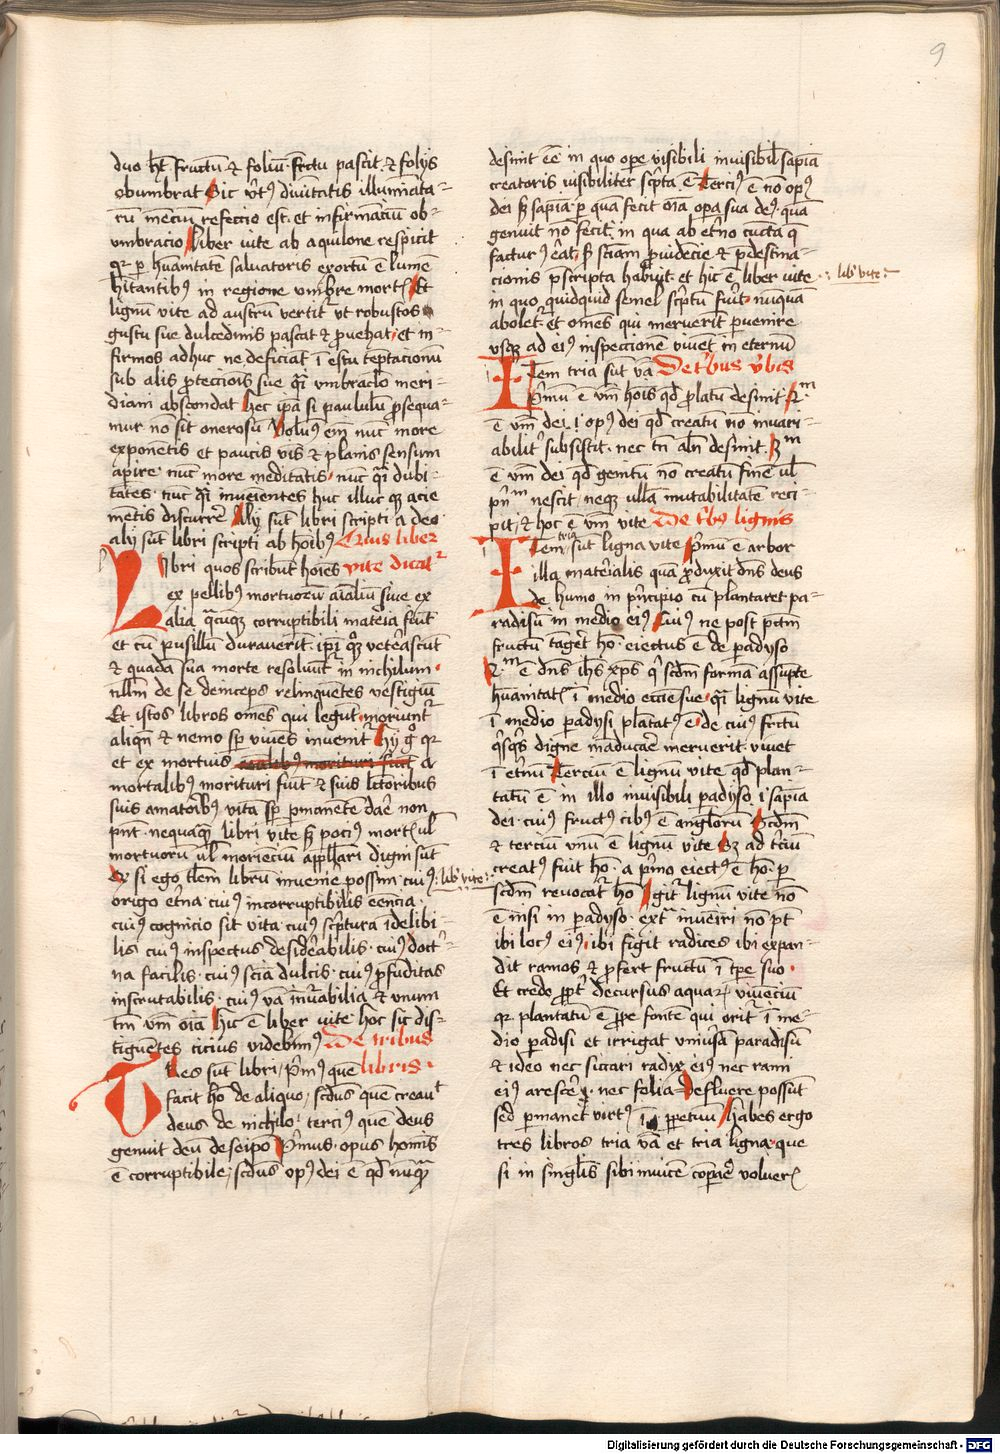 9
duo ht̄ · fructū ⁊ foliū · fr̄ctu pascit · ⁊ folijs
obumbrat Sic v̓tꝰ diuītatis illumīata-
rū mēciū refeccio est · et infirmāciū ob-
umbracio Liber uite ab aquilone respicit
qꝛ ꝑ hūanitatē saluatoris exortū ē lumē
hītantibꝰ in regione vmbre mort̄ Et
lignū vite ad austrū vertit̄ vt robustos
gustu sue dulcedinis pascat ⁊ ꝓuehat · et in-
firmos adhuc ne deficiāt ī estu tēptacionū
sub alis ꝓtecciois sue q̄i vmbraclo meri-
diani abscondat hec ip̄a si paululū ꝓsequa-
mur nō sit onerosū Volūꝰ eīn nūc more
exponētis et paucis vis ⁊ planis sensum
aperire · nūc more meditātis · nūc q̄i dubi-
tātes · nūc q̄i inueientes huc illuc qꝫ acie
mētis discurrē Alij sūt libri scripti a deo
alij sūt libri scripti ab hoībꝰ Cuius liber
Libri quos scribūt hoīes vite dicat̄
ex pellibus mortuorū aīaliū siue ex
alia q̄cūqꝫ corruptibili mat̓ia fiūt
et cū pusillū durauerīt · ip̄i qꝫ vet̓ascūt
⁊ quadā sua morte resoluūt̄ in nichilum ·
nllm̄ de se deinceps relinquētes vestigiū
Et istos libros om̄es qui legūt · moriunt̄
aliqn̄ ⁊ nemo sp̄ viuēs inuenit̄ Hij gͦ qꝛ
et ex mortuis
mortalibꝰ morituri fiūt ⁊ suis lc̄toribus
suis amatoribꝰ vitā sp̄ ꝑmanētē dāe non
pn̄t · nequaq̄ libri vite sꝫ pociꝰ mort̄ ul̄
mortuorū ul̄ moriēciū appll̄ari digni sūt
si ego tlem̄ librū inuenīe possim · cuiꝰ · lib̓ vite ·
origo et̓na · cuiꝰ incorruptibilis eēncia ·
cuiꝰ cognicio sit vita · cuiꝰ sc̓ptura īdelibi-
lis cuiꝰ inspectus desid̓abilis · cuiꝰ doct̓-
na facilis · cuiꝰ scīa dulcis · cuiꝰ ꝓfūditas
inscrutabilis · cuiꝰ v̄a inn̓abilia ⁊ unum
tm̄ vm̄ oīa Hic ē liber uite hoc sic dis-
tiguētes cicius videbimꝰ De tribus
Tres sūt libri, p̓mꝰ quē libris ·
facit hō de aliquo, scd̄us quē creauᵗ
deus de nichilo terciꝰ quē deus
genuit deū de seipo P̓mus · opus homis
ē corruptibile, scd̄us opꝰ dei ē qd̄ nūq̄
desinit eē in quo ope visibili inuisibil̄ sapīa
creatoris visibiliter sc̓pta ē Terciꝰ ē nō opꝰ
dei sꝫ sapīa ꝑ quā fecit oīa opa sua deꝰ · quā
genuit nō fecit in qua ab et̓no cūcta q̄
facturꝰ ēat s̄ scīam ꝓuidēcie ⁊ p̄destina-
cionis p̄scripta habuit et hic ē liber uite · lib̓ vite ·
in quo quidquid semel sc̓ptū fūit · nūquā
abolet̄ · et om̄es qui meruerīt ꝑuenire
vsqꝫ ad eiꝰ inspeccionē viuēt in eternū
Item tria sūt v̄a De t̓bus v̓bis
P̓mū ē vm̄ hoīs qd̄ ꝓlatū desinit · 2ᵐ
ē vm̄ dei · i · opꝰ dei qd̄ creatū nō inuari-
abilit̓ subsistit · nec tn̄ aln̄ desinit · 3ᵐ
ē vm̄ dei qd̄ genitū nō creatū finē ul̄
pn̄ᵐ nescit, neqꝫ ullā mutabilitatē reci-
pit, ⁊ hoc ē vm̄ vite De t̓bꝰ lignis
Item tria sūt ligna vite P̓mū ē arbor
illa mat̓ialis quā ꝓduxit dn̄s deus
de humo in p̓ncipio cū plantaret pa-
radisū in medio eiꝰ Cuiꝰ ne post pctm̄
fructū tāget̄ hō · eiectus ē de ꝑadyso
2ᵐ ē dn̄s ih̄s xp̄s q̓ scdm̄ formā assūpte
hūanitat̄ ī medio eccīe sue · q̄i lignū vite
ī medio ꝑadysi plātatꝰ ē · de cuiꝰ fr̄ctu
q̓sq̓s digne māducāe meruerit · viuet
ī et̓nū Terciū ē lignū vite qd̄ plan-
tatū ē in illo inuisibili ꝑadyso · i · sapīa
dei · cuiꝰ fructꝰ cibꝰ ē angl̄orū Scdm̄
⁊ terciū vnū ē lignū vite Sꝫ ad t̓ciū
creatꝰ fuit hō · a p̓mo eiectꝰ ē hō · ꝑ
scdm̄ reuocat̄ hō Igit̄ lignū vite nō
ē insi in ꝑadyso · ext̄ inueīri nō pt̄
ibi locꝰ eiꝰ · ibi figit radices ibi expan-
dit ramos ⁊ ꝓfert fructū ī tp̄e suo ·
Et crede ꝓpt̓ decursus aquaꝝ viuēciū
qꝛ plantatū ē ꝓpe fontē qui orit̄ ī me-
dio ꝑadisi et irrigat vniūsā paradisū
⁊ ideo nec siccari radix eiꝰ nec rami
eiꝰ arescē · nec folia defluere possūt
sed ꝑmanet virtꝰ ī ꝑpetuū Habes ergo
tres libros tria v̄a et tria ligna · que
si in singl̄is sibi inuicē cōpaīe volueꝛ̄